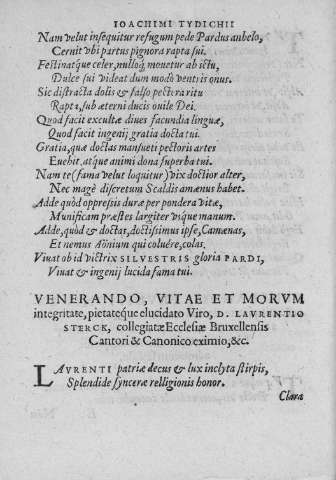 IOACHIMI TYDICHII
Nam velut insequitur refugum pede Pardus anhelo,
Cernit vbi partus pignora rapta sui.
Festinatque celer, nulloque mouetur ab ictu,
Dulce sui videat dum modò ventris onus.
Sic distracta dolis & falso pectora ritu
Rapis, sub æterni ducis ouile Dei.
Quod facit excultæ diues facundia linguæ,
Quod facit ingenij gratia docta tui.
Gratia, quæ doctas mansueti pectoris artes
Euehit, atque animi dona superba tui.
Nam te (fama velut loquitur) vix doctior alter,
Nec magè discretum Scaldis amœnus habet.
Adde quòd oppressis duræ per pondera vitæ,
Munificam præstes largiter vsque manum.
Adde, quòd & doctas, doctissimus ipse, Camœnas,
Et nemus Aönium qui coluére, colas.
Viuat ob id victrix SILVESTRIS gloria PARDI,
Viuat & ingenij lucida fama tui.
VENERANDO, VITAE ET MORVM
integritate, pietateque elucidato Viro, D. LAVRENTIO
STERCK, collegiatæ Ecclesiæ Bruxellensis
Cantori & Canonico eximio, &c.
LAVRENTI patriæ decus & lux inclyta stirpis,
Splendide synceræ relligionis honor.
Clara